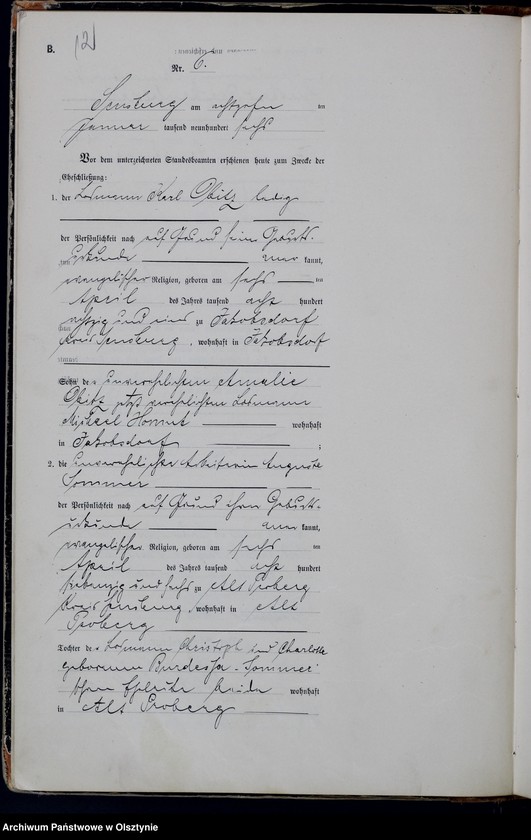 B.
12
Nr. 6.
Sensburg am achtzehn ten
Januar tausend neunhundert sechs
Vor dem unterzeichneten Standesbeamten erschienen heute zum Zwecke der
Eheschließung:
1. der Losmann Karl Obitz ledig
der Persönlichkeit nach auf Grund seiner Geburts-
urkunde aner kannt,
evangelischer Religion, geboren am sechs ten
April des Jahres tausend acht hundert
achtzig und eins zu Jakobsdorf
Kreis Sensburg, wohnhaft in Jakobsdorf
Sohn der unverehelichten Amalie
Obitz jetzt verehelichten Losmann
Michael wohnhaft
in Jakobsdorf ;
2. die unverehelichte Arbeiterin Auguste
Sommer
der Persönlichkeit nach auf Grund ihrer Geburts-
urkunde aner kannt,
evangelischer Religion, geboren am sechs ten
April des Jahres tausend acht hundert
siebenzig und sechs zu Alt Proberg
Kreis Sensburg, wohnhaft in Alt
Proberg
Tochter der Losmann Christoph und Charlotte
geborenen Sommer
schen Eheleute beide wohnhaft
in Alt Proberg
Archiwum Państwowe w Olsztynie